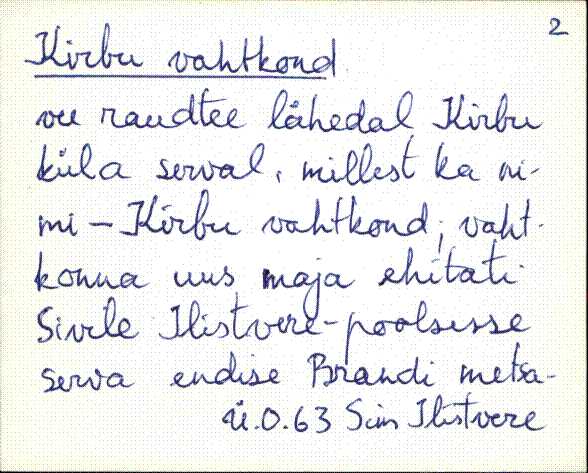 2
Kirbu vahtkond
vu raudtee lähedal, Kirbu
küla serval, millest ka ni-
mi – Kirbu vahtkond; vaht-
konna uus maja ehitati
Ilistvere-poolsesse
serva endise Brandi metsa-
Ü.O.63 Ilistvere